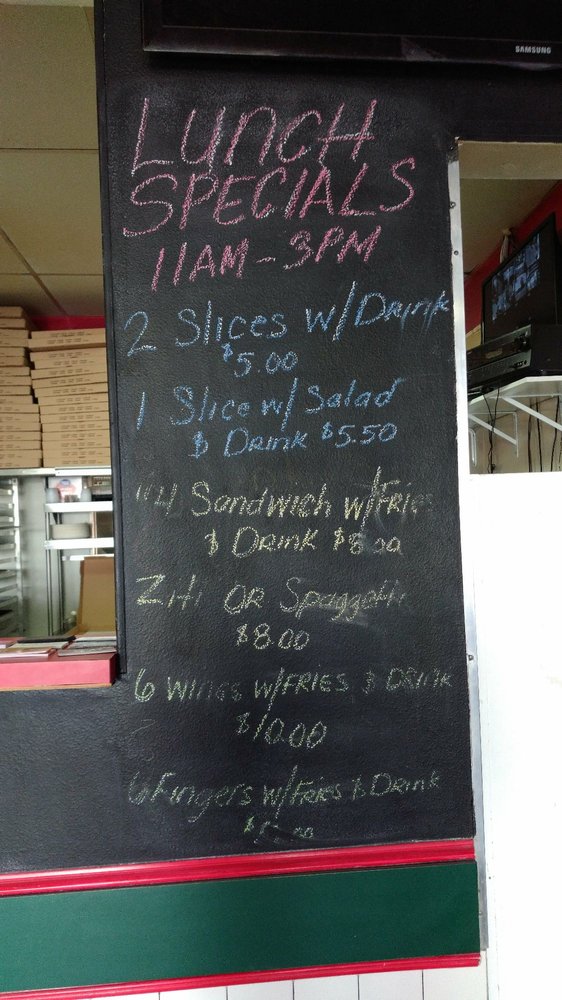 SAMSUNG
LUNCH
SPECIALS
11AM-3PM
2 Slices w/Drink
$5.00
1 Slice w/ Salad
& Drink $5.50
Sandwich w/Fries
& Drink
OR Spaggetti
$8.00
6 WINGS W/FRIES & DRINK
$10.00
6 Fingers w/Fries & Drink